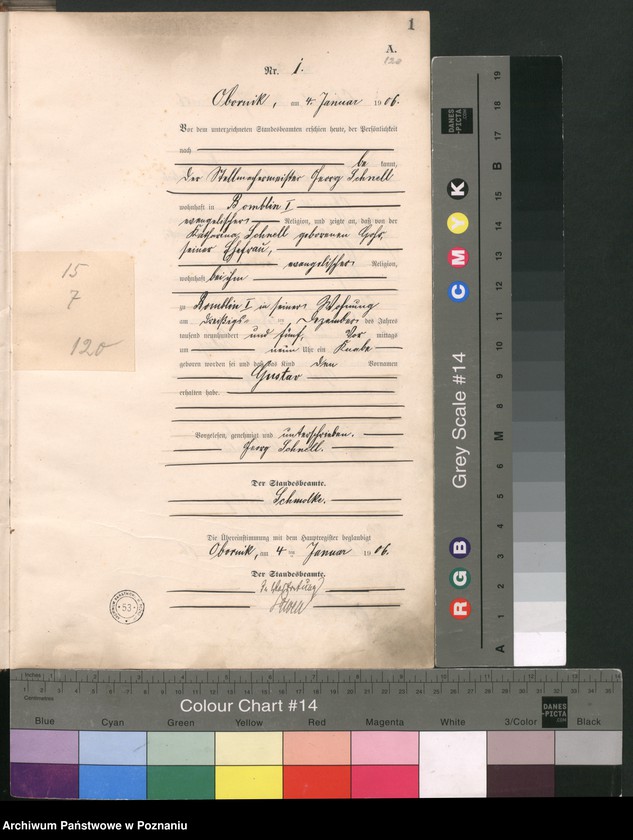 1
A.
120
Nr. 1.
Obornik, am 4. Januar 1906.
Vor dem unterzeichneten Standesbeamten erschien heute, der Persönlichkeit
nach
be kannt,
der Stellmachermeister Georg Schnell
wohnhaft in Bomblin I
evangelischer Religion, und zeigte an, daß von der
Katharina Schnell geborenen
seiner Ehefrau,
evangelischer Religion,
wohnhaft bei ihm
zu Bomblin I in seiner Wohnung
am Dreißigs- ten Dezember des Jahres
tausend neunhundert und fünf, Vor mittags
um neun Uhr ein Knabe
geboren worden sei und daß das Kind den Vornamen
Gustav
erhalten habe.
Vorgelesen, genehmigt und unterschrieben.
Georg Schnell.
Der Standesbeamte.
Schmolke.
Die Übereinstimmung mit dem Hauptregister beglaubigt
Obornik, am 4 ten Januar 1906.
Der Standesbeamte.
In Vertretung
15
7
120
53
DANES-PICTA.COM
Grey Scale #14
R G B C M Y K
A 1 2 3 4 5 6 M 8 9 10 11 12 13 14 15 B 17 18 19
Inches
Centimetres
Colour Chart #14
DANES-PICTA.COM
Blue Cyan Green Yellow Red Magenta White 3/Color Black
Archiwum Państwowe w Poznaniu